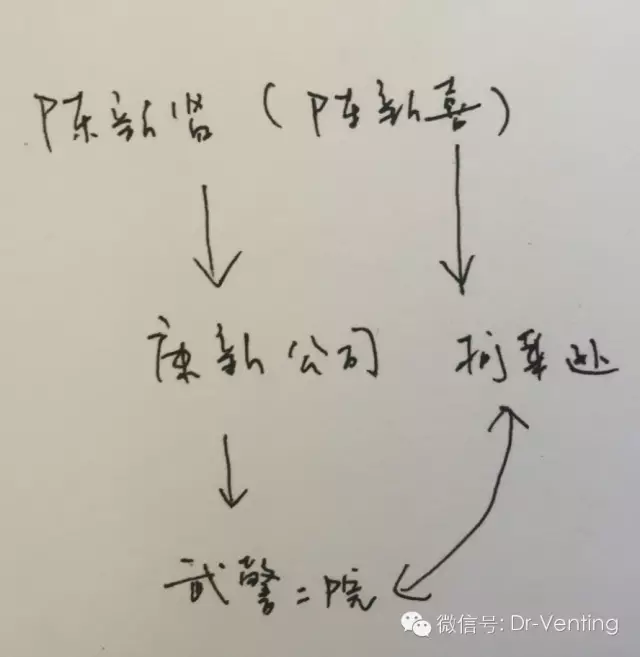 陈新贤（陈新喜）
康新公司 柯莱逊
武警二院
微信号: Dr-Venting